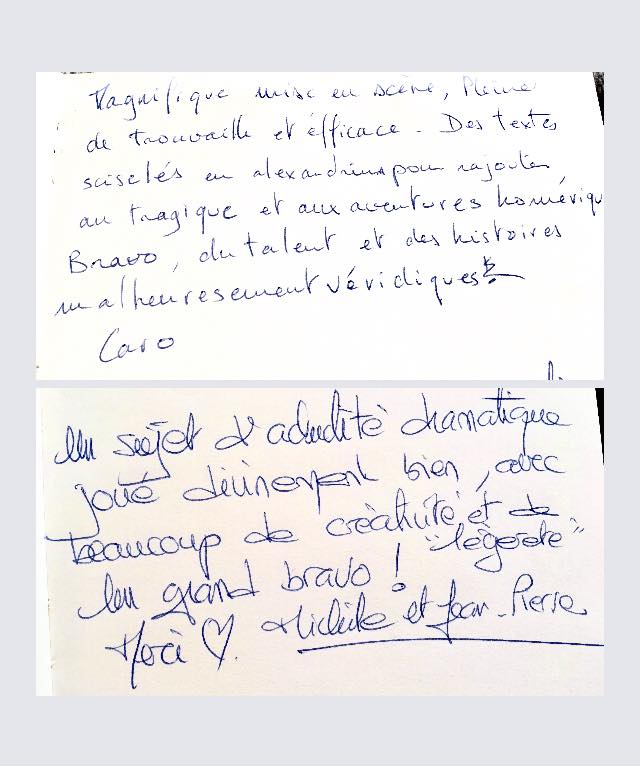 Magnifique mise en scène, Pleine
de trouvaille et éfficace. Des textes
sciselés en alexandrins pour rajouter
au tragique et aux aventures homériqu
Bravo, du talent et des histoires
malheuresement véridiques
Caro
Un sujet d'actualité dramatique
joué divinement bien, avec
beaucoup de créativité et de
"légereté"
Un grand bravo !
Merci ♡. Michèle et Jean-Pierre